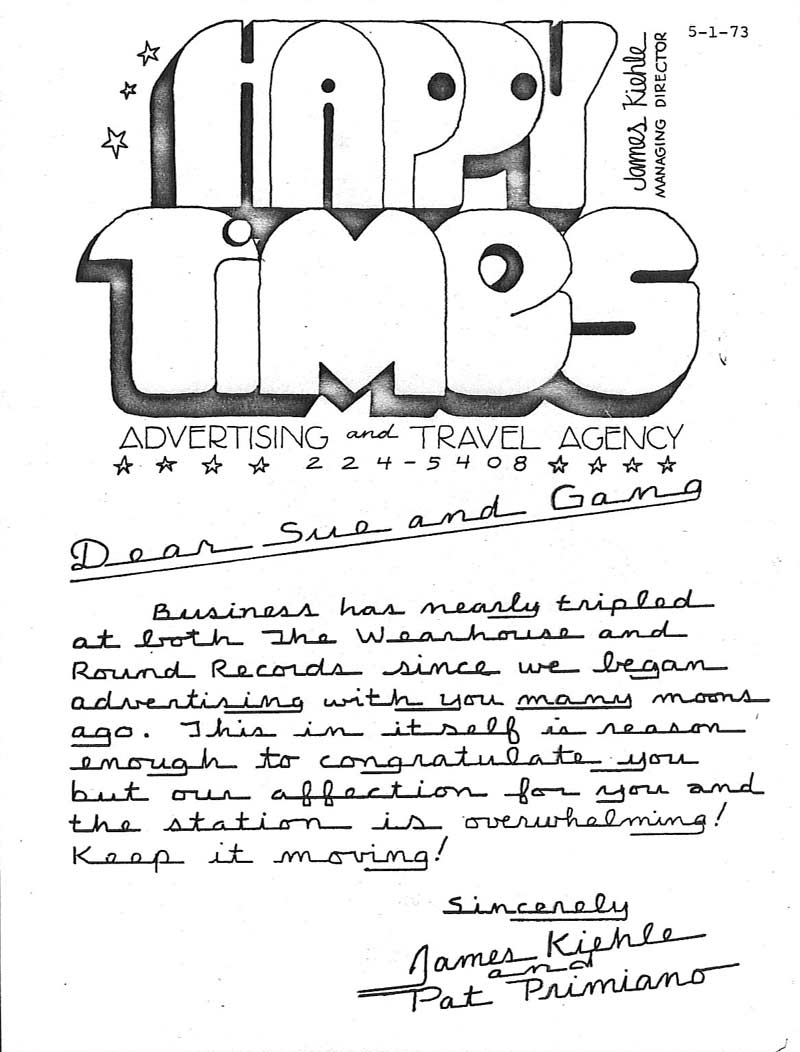 5-1-73
HAPPY
TIMES
James Kiehle
MANAGING DIRECTOR
ADVERTISING and TRAVEL AGENCY
224-5408
Dear Sue and Gang
Business has nearly tripled
at both The Wearhouse and
Round Records since we began
advertising with you many moons
ago. This in itself is reason
enough to congratulate you
but our affection for you and
the station is overwhelming!
Keep it moving!
Sincerely
James Kiehle
and
Pat Primiano